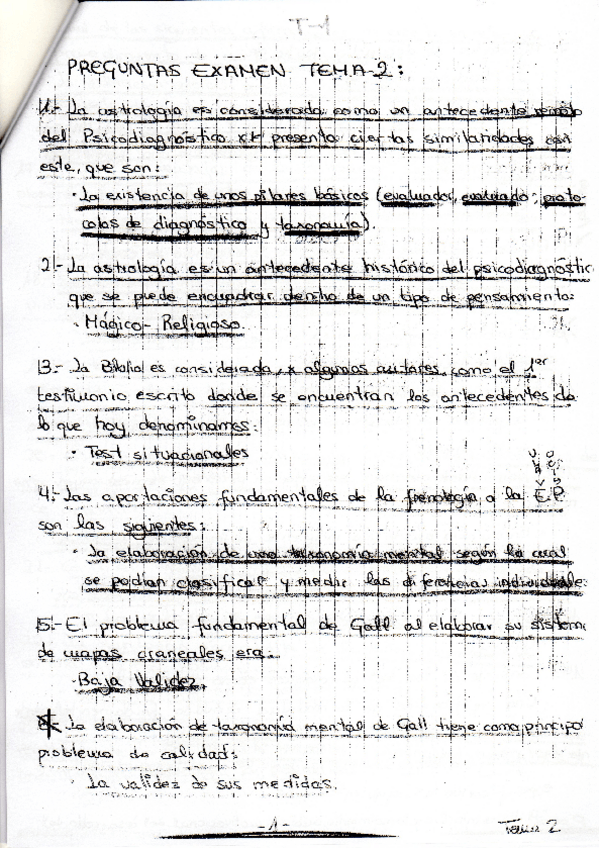 T-1
PREGUNTAS EXAMEN TEMA-2:
1.- La astrología es considerada como un antecedente remoto
del Psicodiagnóstico xk presenta ciertas similaridades con
este, que son:
· La existencia de unos pilares básicos (evaluador, evaluado, proto-
colos de diagnóstico y taxonomía).
2.- La astrología es un antecedente histórico del psicodiagnóstic
que se puede encuadrar dentro de un tipo de pensamiento:
· Mágico-Religioso.
3.- La Biblia es considerada x algunos autores como el 1er
testimonio escrito donde se encuentran los antecedentes de
lo que hoy denominamos:
· Test situacionales
4.- Las aportaciones fundamentales de la frenología a la E.P.
son las siguientes:
· La elaboración de una taxonomía mental según la cual
se podían clasificar y medir las diferencias individuale
5.- El problema fundamental de Gall al elaborar su sistem
de mapas craneales era:
· Baja Validez.
La elaboración de taxonomía mental de Gall tiene como principal
problema de calidad:
· La validez de sus medidas.
-1-
Tema 2